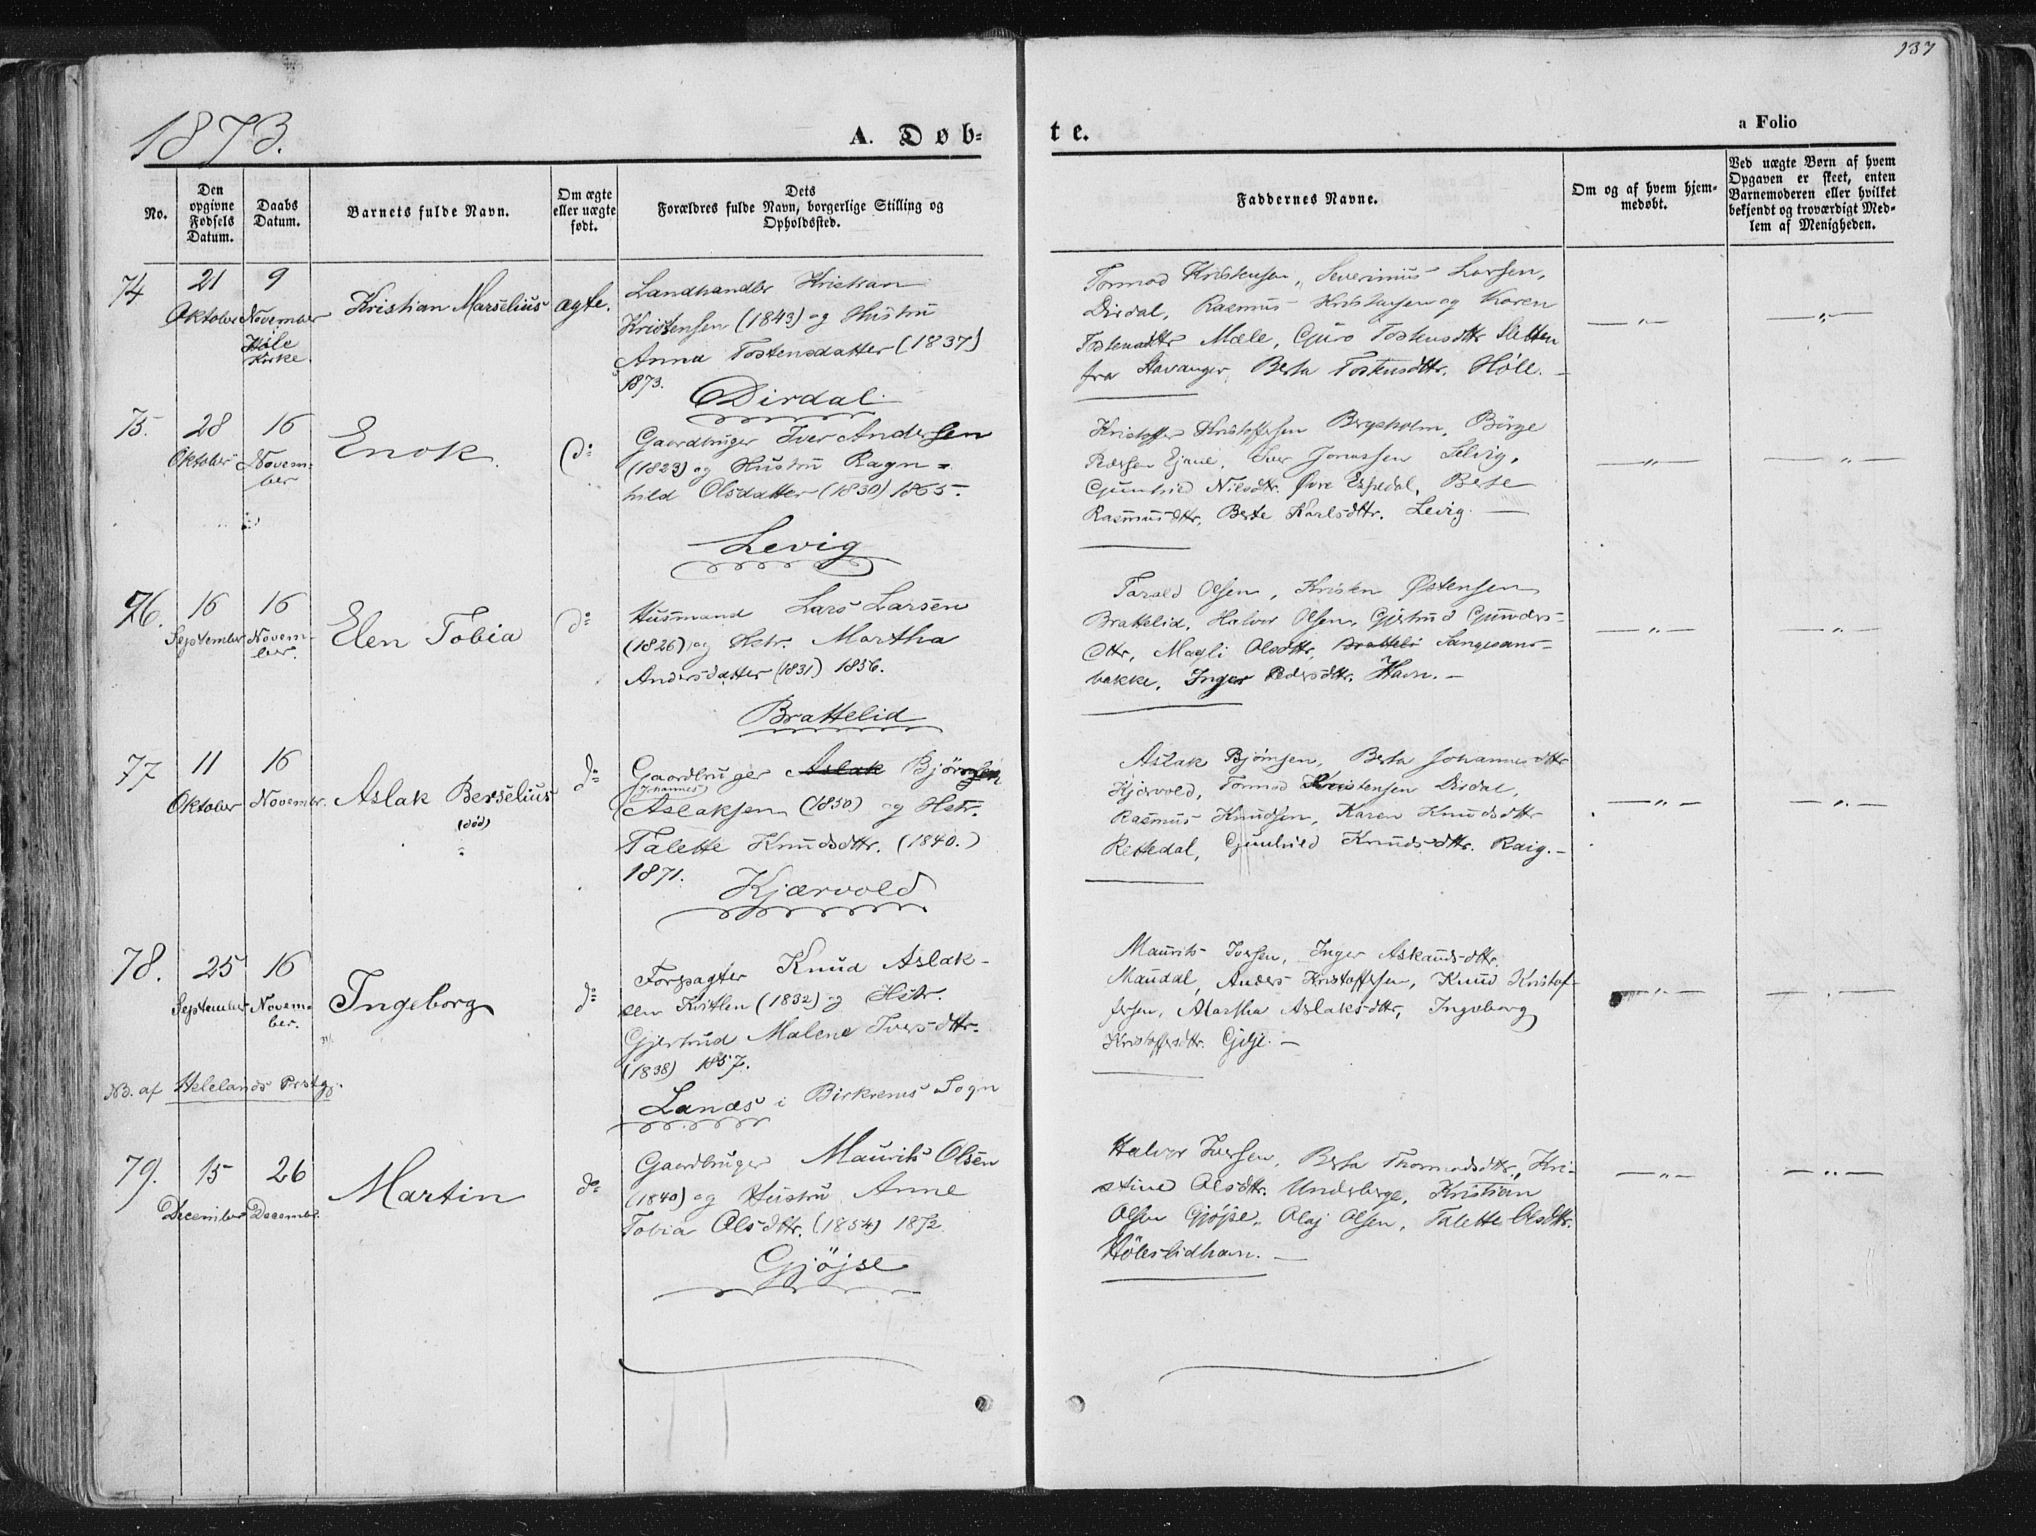 137
1873.
A. Døb-
te.
a Folio
No.
Den opgivne Fødsels Datum.
Daabs Datum.
Barnets fulde Navn.
Om ægte eller uægte født.
Dets Forældres fulde Navn, borgerlige Stilling og Opholdssted.
Faddernes Navne.
Om og af hvem hjem-
medøbt.
Ved uægte Børn af hvem
Opgaven er skeet, enten
Barnemoderen eller hvilket
bekjendt og troværdigt Med-
lem af Menigheden.
74
21 Oktober
9 November
Høle Kirke
Kristian Marselius
ægte.
Landhandler Kristian
Kristensen (1843) og Hustru
Anna Tostensdatter (1837)
1873.
Dirdal
Tormod Kristensen, Severinius Larsen,
Dirdal, Rasmus Kristensen og Karen
Tostensdttr Mæle, Guro Tostensdttr Sletten
fra Stavanger, Berta Tostensdttr. Höle. —
— „ —
— „ —
75.
28 Oktober
16 Novem-
ber
Enok
do
Gaardbruger Iver Andersen
(1823) og Hustru Ragn-
hild Olsdatter (1830) 1865.
Levig
Kristoffer Kristoffersen Bergsholm, Börge
Pedersen Ejane, Iver Jonassen Selvig,
Gunhild Nilsdtr. Øvre Espedal, Berte
Rasmusdttr, Berte Karlsdttr. Levig. —
— „ —
— „ —
76.
16 September
16 Novem-
ber.
Elen Tobia
do
Husmand Lars Larsen
(1826) og Hstr. Martha
Andersdatter (1831) 1856.
Brattelid
Tarald Olsen, Kristen Østensen
Brattelid, Halvor Olsen, Gjertrud Gunders-
dttr, Magli Olsdttr, Bratteli Sangesand-
bakke, Inger Pedersdttr. Havn. —
— „ —
— „ —
77
11 Oktober
16 Novembr.
Aslak Berselius
(død)
do
Gaardbruger Aslak Bjørnsen
(Johannes)
Aslaksen (1850) og Hstr.
Talette Knudsdttr. (1840.)
1871.
Kjærvold
Aslak Bjørnsen, Berta Johannesdttr
Kjærvold, Tormod Kristensen Dirdal,
Rasmus Knudsen, Karen Knudsdttr
Rettedal, Gunhild Knudsdttr. Raig. —
— „ —
— „ —
78.
25 September
16 Novem-
ber.
Ingeborg
do
Forpagter Knud Aslak-
sen (1832) og Hstr.
Gjertrud Malene Iversdttr.
(1838) 1857.
NB. af Helelands Prstgj.
Landes i Birkrems Sogn
Maurits Iversen, Inger Askaudsdttr.
Maudal, Anders Kristoffersen, Knud Kristof-
fersen, Martha Aslaksdttr, Ingeborg
Kristoffersdttr. Gilje. —
— „ —
— „ —
79.
15 December
26 Decembr.
Martin
do
Gaardbruger Maurits Olsen
(1840) og Hustru Anne
Tobia Olsdttr. (1854) 1872
Gjøjse
Halvor Iversen, Berta Thormodsdttr, Kri-
stine Olsdttr. Underberge, Kristian
Olsen Gjøjse, Olaj Olsen, Talette Olsdttr.
Høleslidhavn. —
— „ —
— „ —